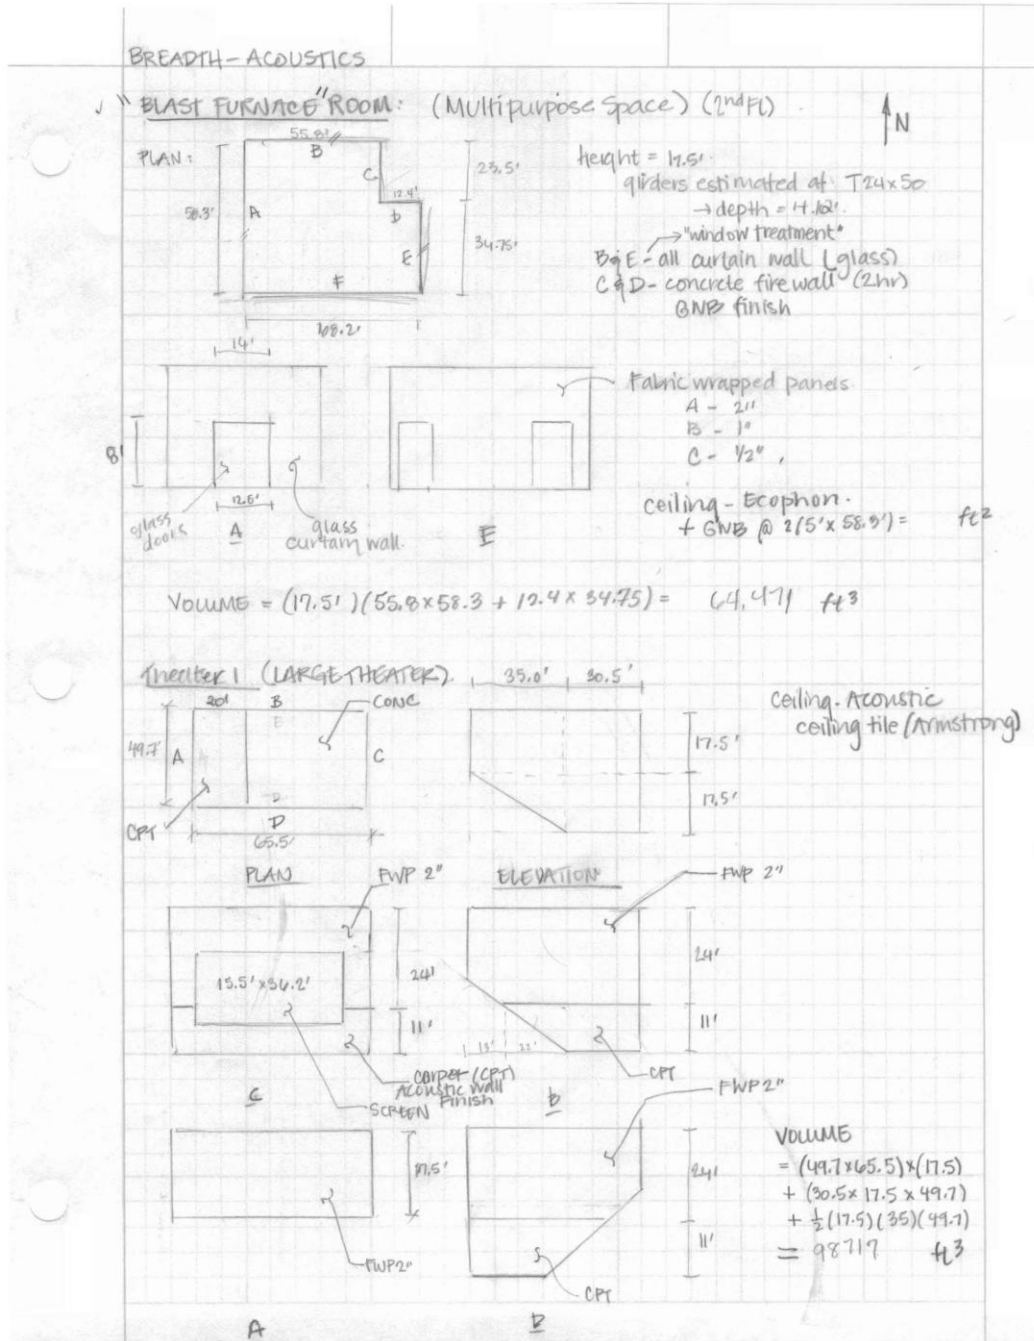 BREADTH - ACOUSTICS
"BLAST FURNACE" ROOM: (Multipurpose Space) (2nd Fl)
N
PLAN:
55.8'
B
C
23.5'
12.4'
D
58.3'
A
34.75'
E
F
68.2'
height = 17.5'
girders estimated at T24x50
→ depth = 4.162'
→ "window treatment"
B & E - all curtain wall (glass)
C & D - concrete firewall (2hr)
GWB finish
14'
8'
12.5'
glass doors
A
glass curtain wall
Fabric wrapped panels
A - 2"
B - 1"
C - 1/2"
ceiling - Ecophon.
+ GWB @ 2(5' x 58.3') = ft2
VOLUME = (17.5')(55.8 x 58.3 + 12.4 x 34.75) = 64,471 ft3
Theater 1 (LARGE THEATER)
20'
B
CONC
49.7'
A
C
D
CPT
65.5'
PLAN
35.0'
30.5'
17.5'
17.5'
ELEVATION
Ceiling - Acoustic
ceiling tile (Armstrong)
FWP 2"
15.5' x 36.2'
24'
11'
Carpet (CPT)
Acoustic Wall
Finish
SCREEN
C
FWP 2"
24'
11'
13'
22'
CPT
17.5'
FWP 2"
A
FWP 2"
24'
11'
CPT
VOLUME
= (49.7 x 65.5) x (17.5)
+ (30.5 x 17.5 x 49.7)
+ 1/2 (17.5)(35)(49.7)
= 98717 ft3